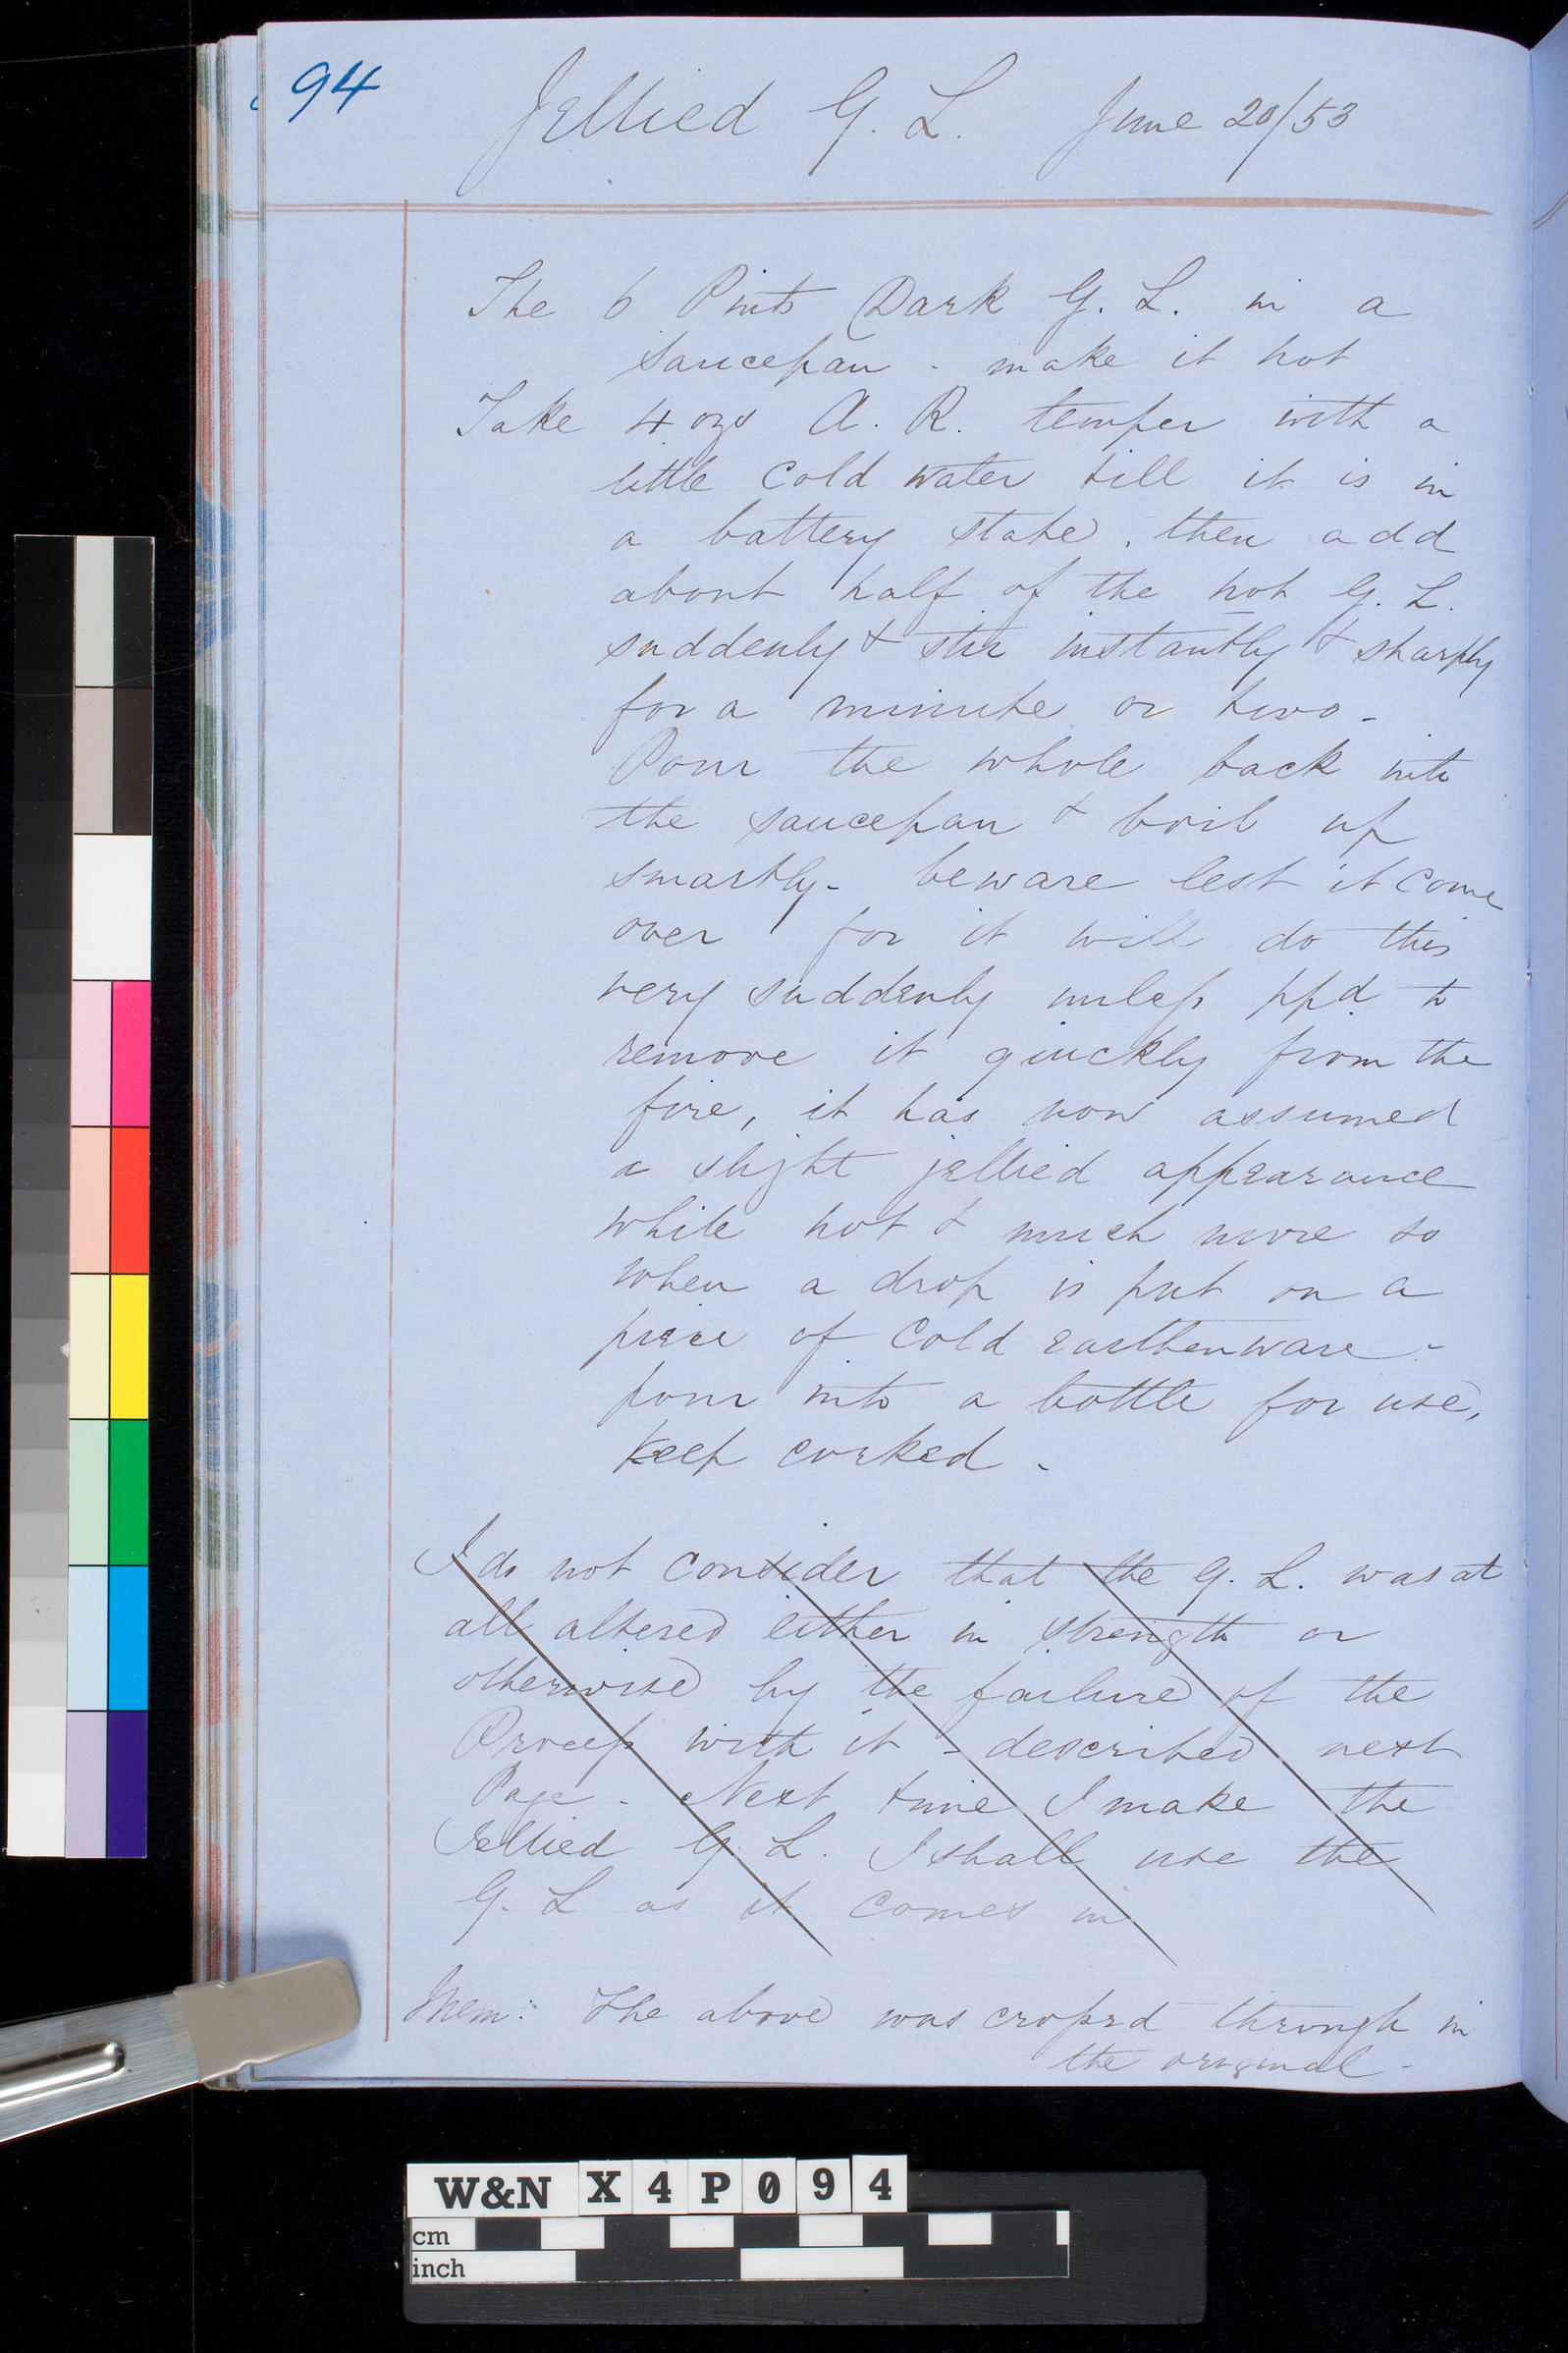 94
Jellied G. L. June 20/53
The 6 Pints Dark G. L. in a
saucepan - make it hot
Take 4 ozs A. R. temper with a
little cold water till it is in
a battery state, then add
about half of the hot G. L.
suddenly & stir instantly & sharply
for a minute or two -
Pour the whole back into
the saucepan & boil up
smartly - beware lest it come
over for it will do this
very suddenly unless ppd to
remove it quickly from the
fire, it has now assumed
a slight jellied appearance
while hot & much more so
when a drop is put on a
piece of cold earthenware -
pour into a bottle for use,
Keep corked -
I do not consider that the G. L. was at
all altered either in strength or
otherwise by the failure of the
Process with it - described next
Page - Next time I make the
Jellied G. L. I shall use the
G. L as it comes in
Mem: The above was crossed through in
the original -
W&N X4P094
cm
inch